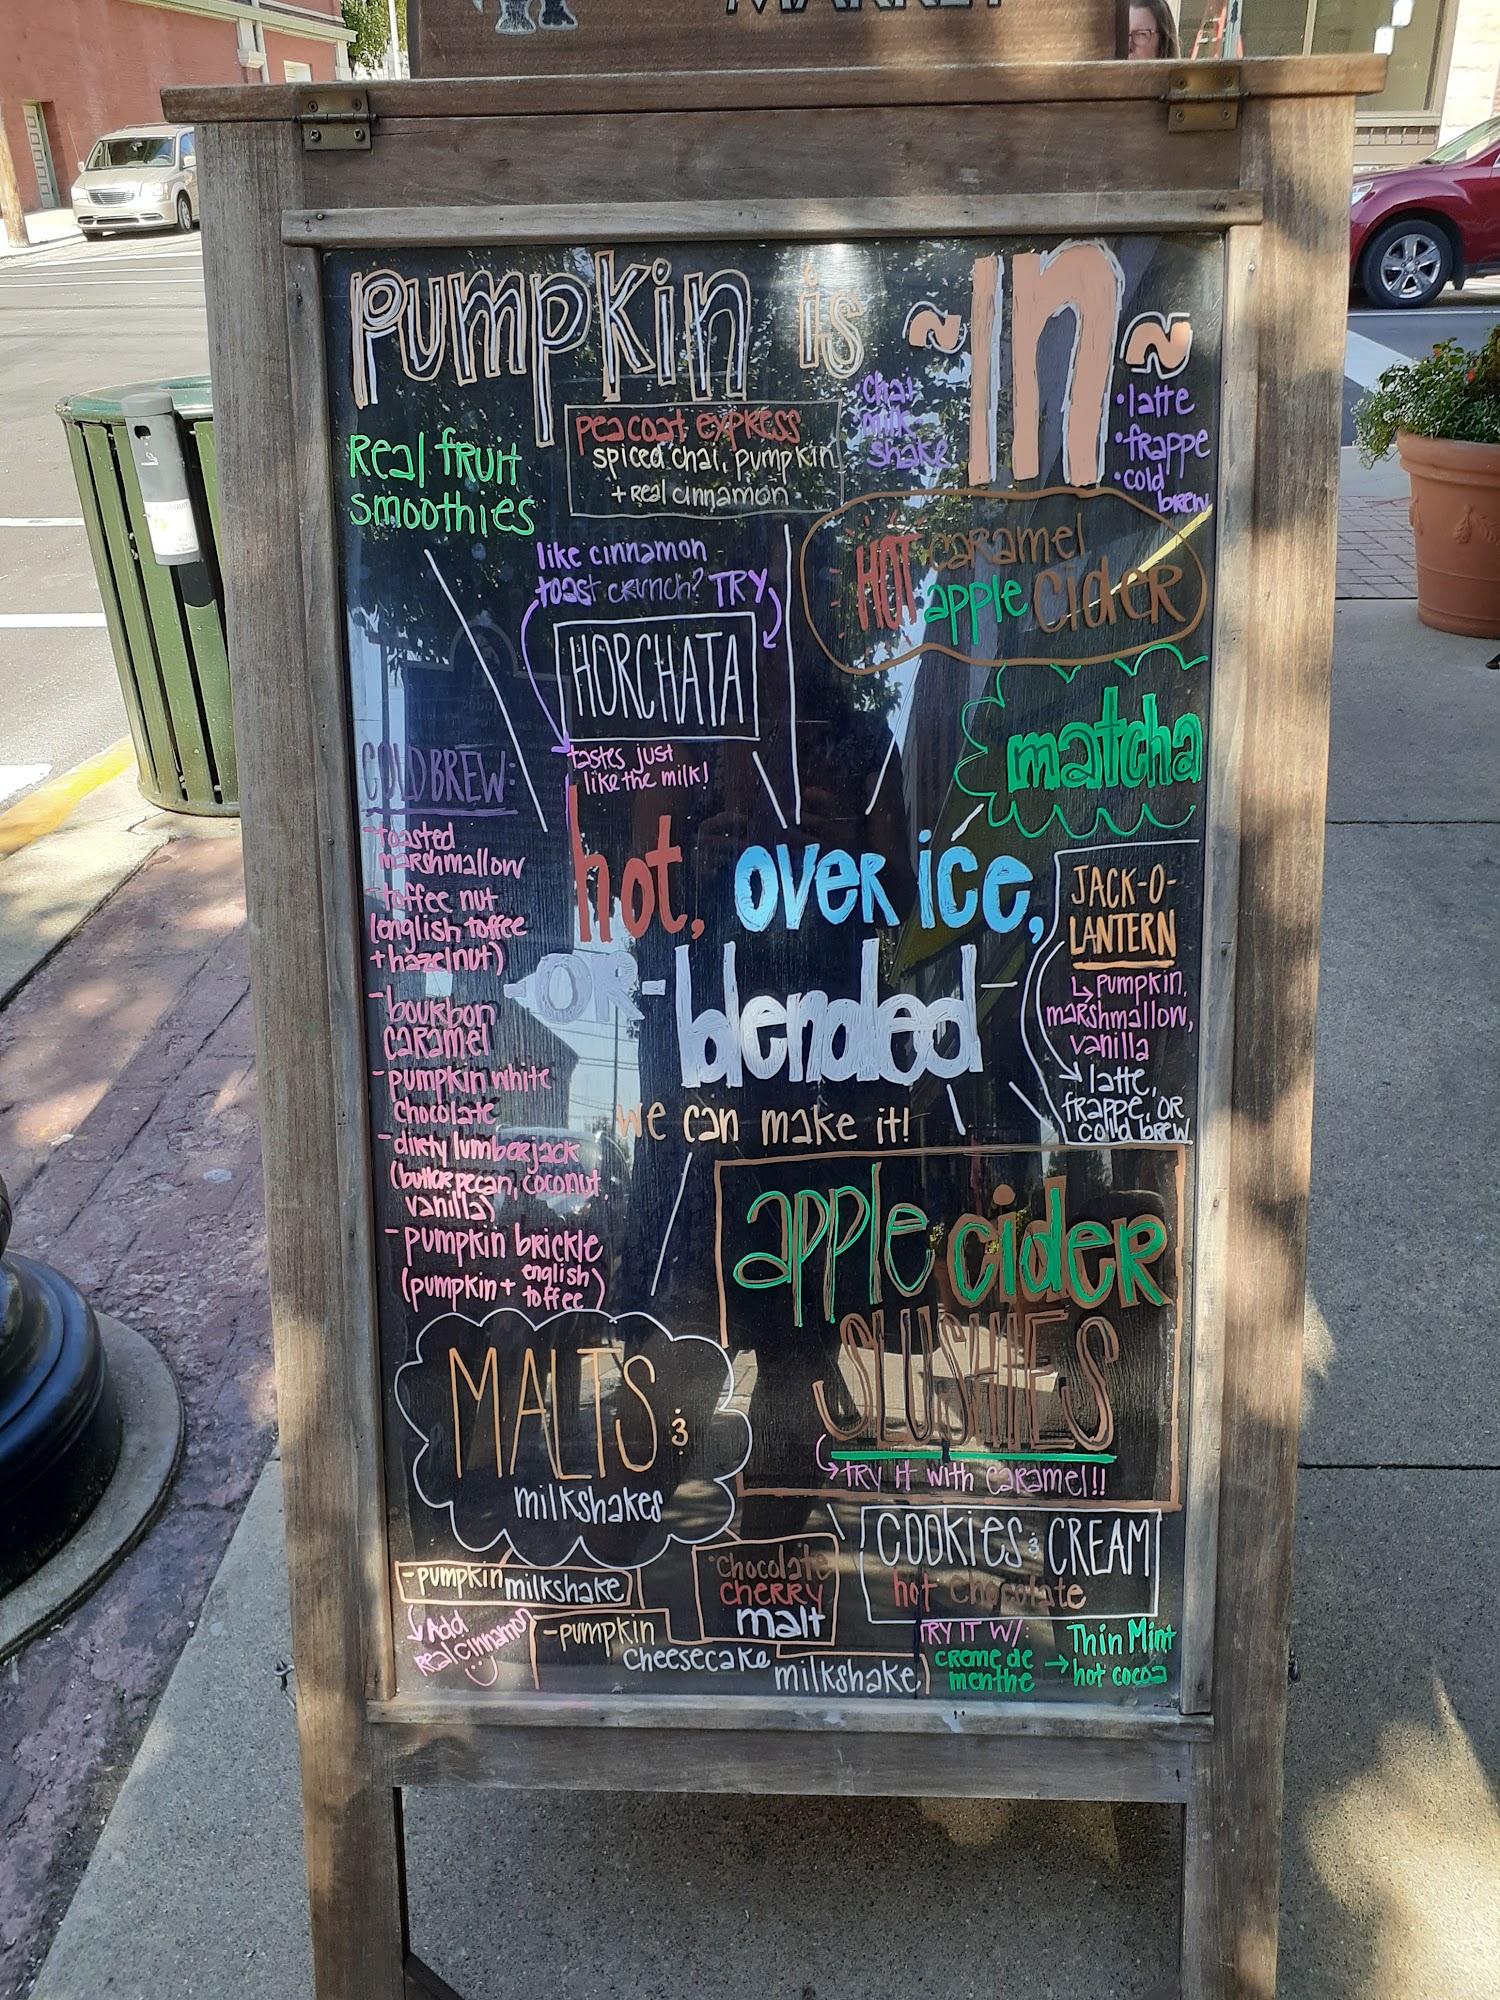 MARKET
pumpkin is ~IN~
Real fruit
smoothies
peacoat express
spiced chai, pumpkin
+ real cinnamon
chai
milk
shake
• latte
• frappe
• cold
brew
like cinnamon
toast crunch? TRY
HORCHATA
tastes just
like the milk!
HOT caramel
apple cider
matcha
COLD BREW:
- toasted
marshmallow
- toffee nut
(english toffee
+ hazelnut)
- bourbon
caramel
- pumpkin white
chocolate
- dirty lumberjack
(butter pecan, coconut,
vanilla)
- pumpkin brickle
(pumpkin + english
toffee)
hot, over ice,
- OR - blended -
we can make it!
JACK-O-
LANTERN
pumpkin,
marshmallow,
vanilla
latte,
frappe, OR
cold brew
apple cider
SLUSHIES
TRY IT with caramel!!
MALTS &
milkshakes
- pumpkin milkshake
Add
real cinnamon
- pumpkin
cheesecake
milkshake
Chocolate
cherry
malt
COOKIES & CREAM
hot chocolate
TRY IT W/:
creme de
menthe
Thin Mint
hot cocoa